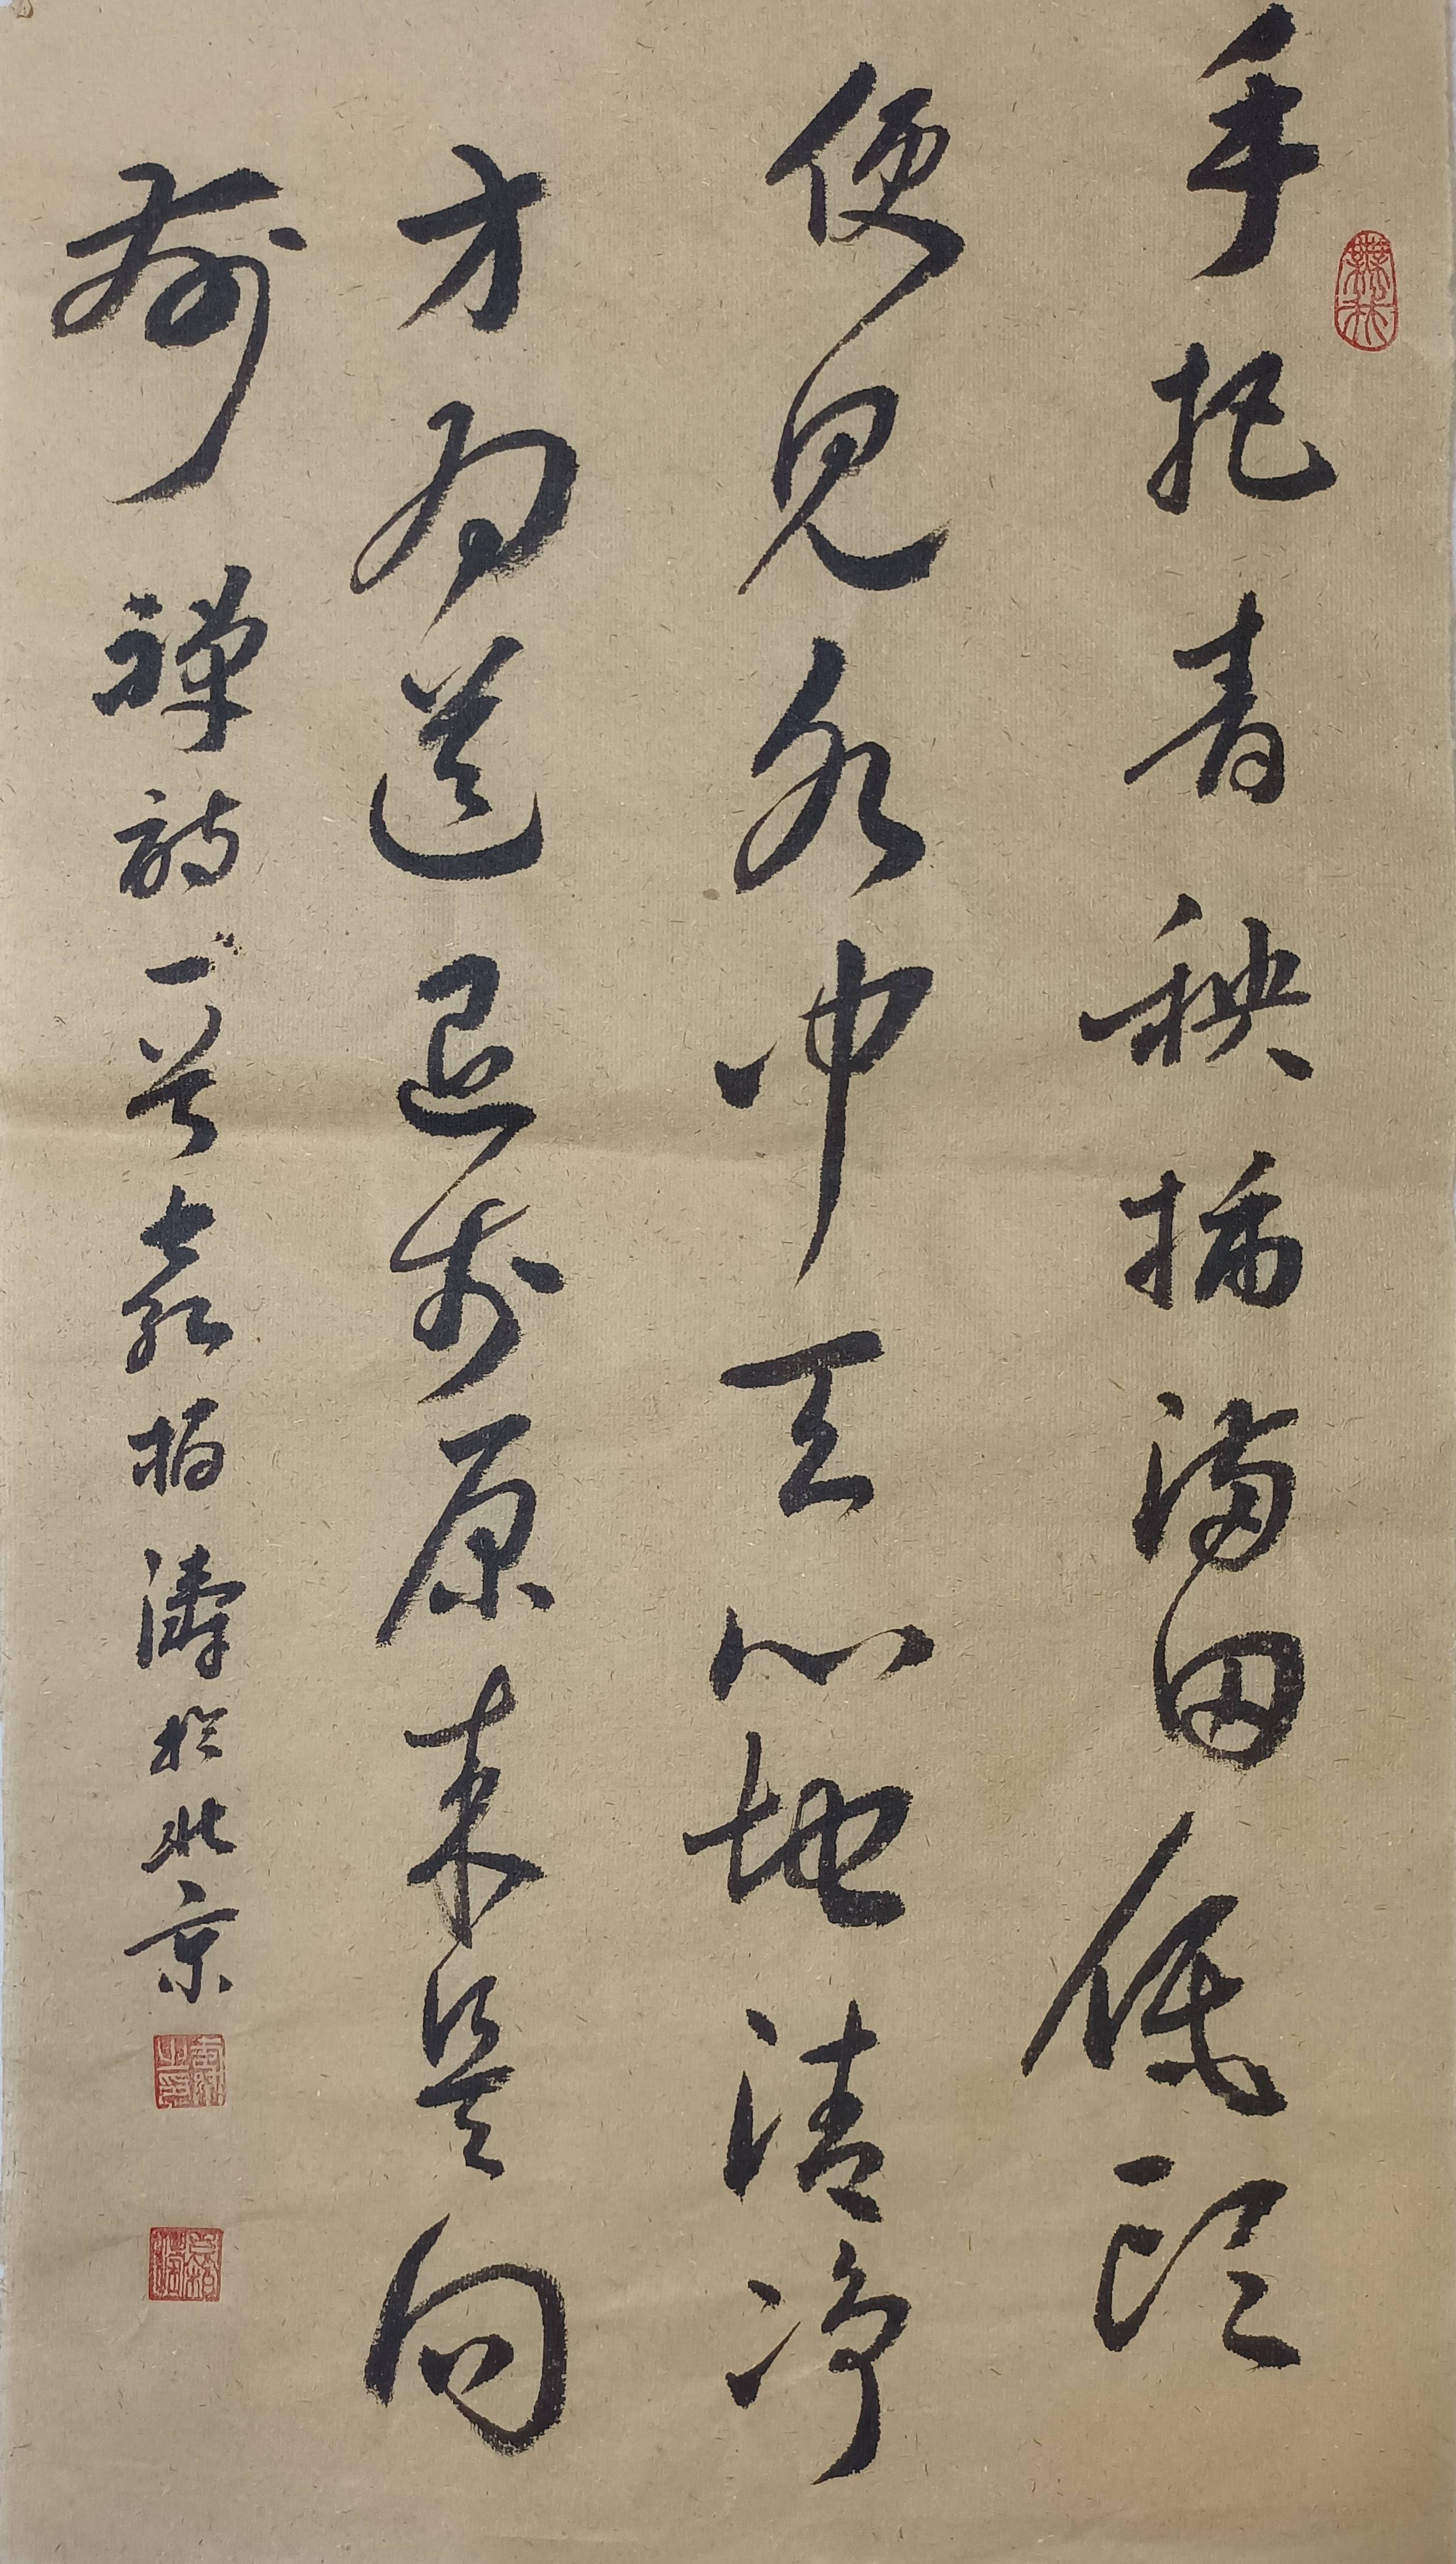 手把青秧插满田低头
便见水中天心地清净
方为道退步原来是向
前 禅诗一首 袁柏濤於北京